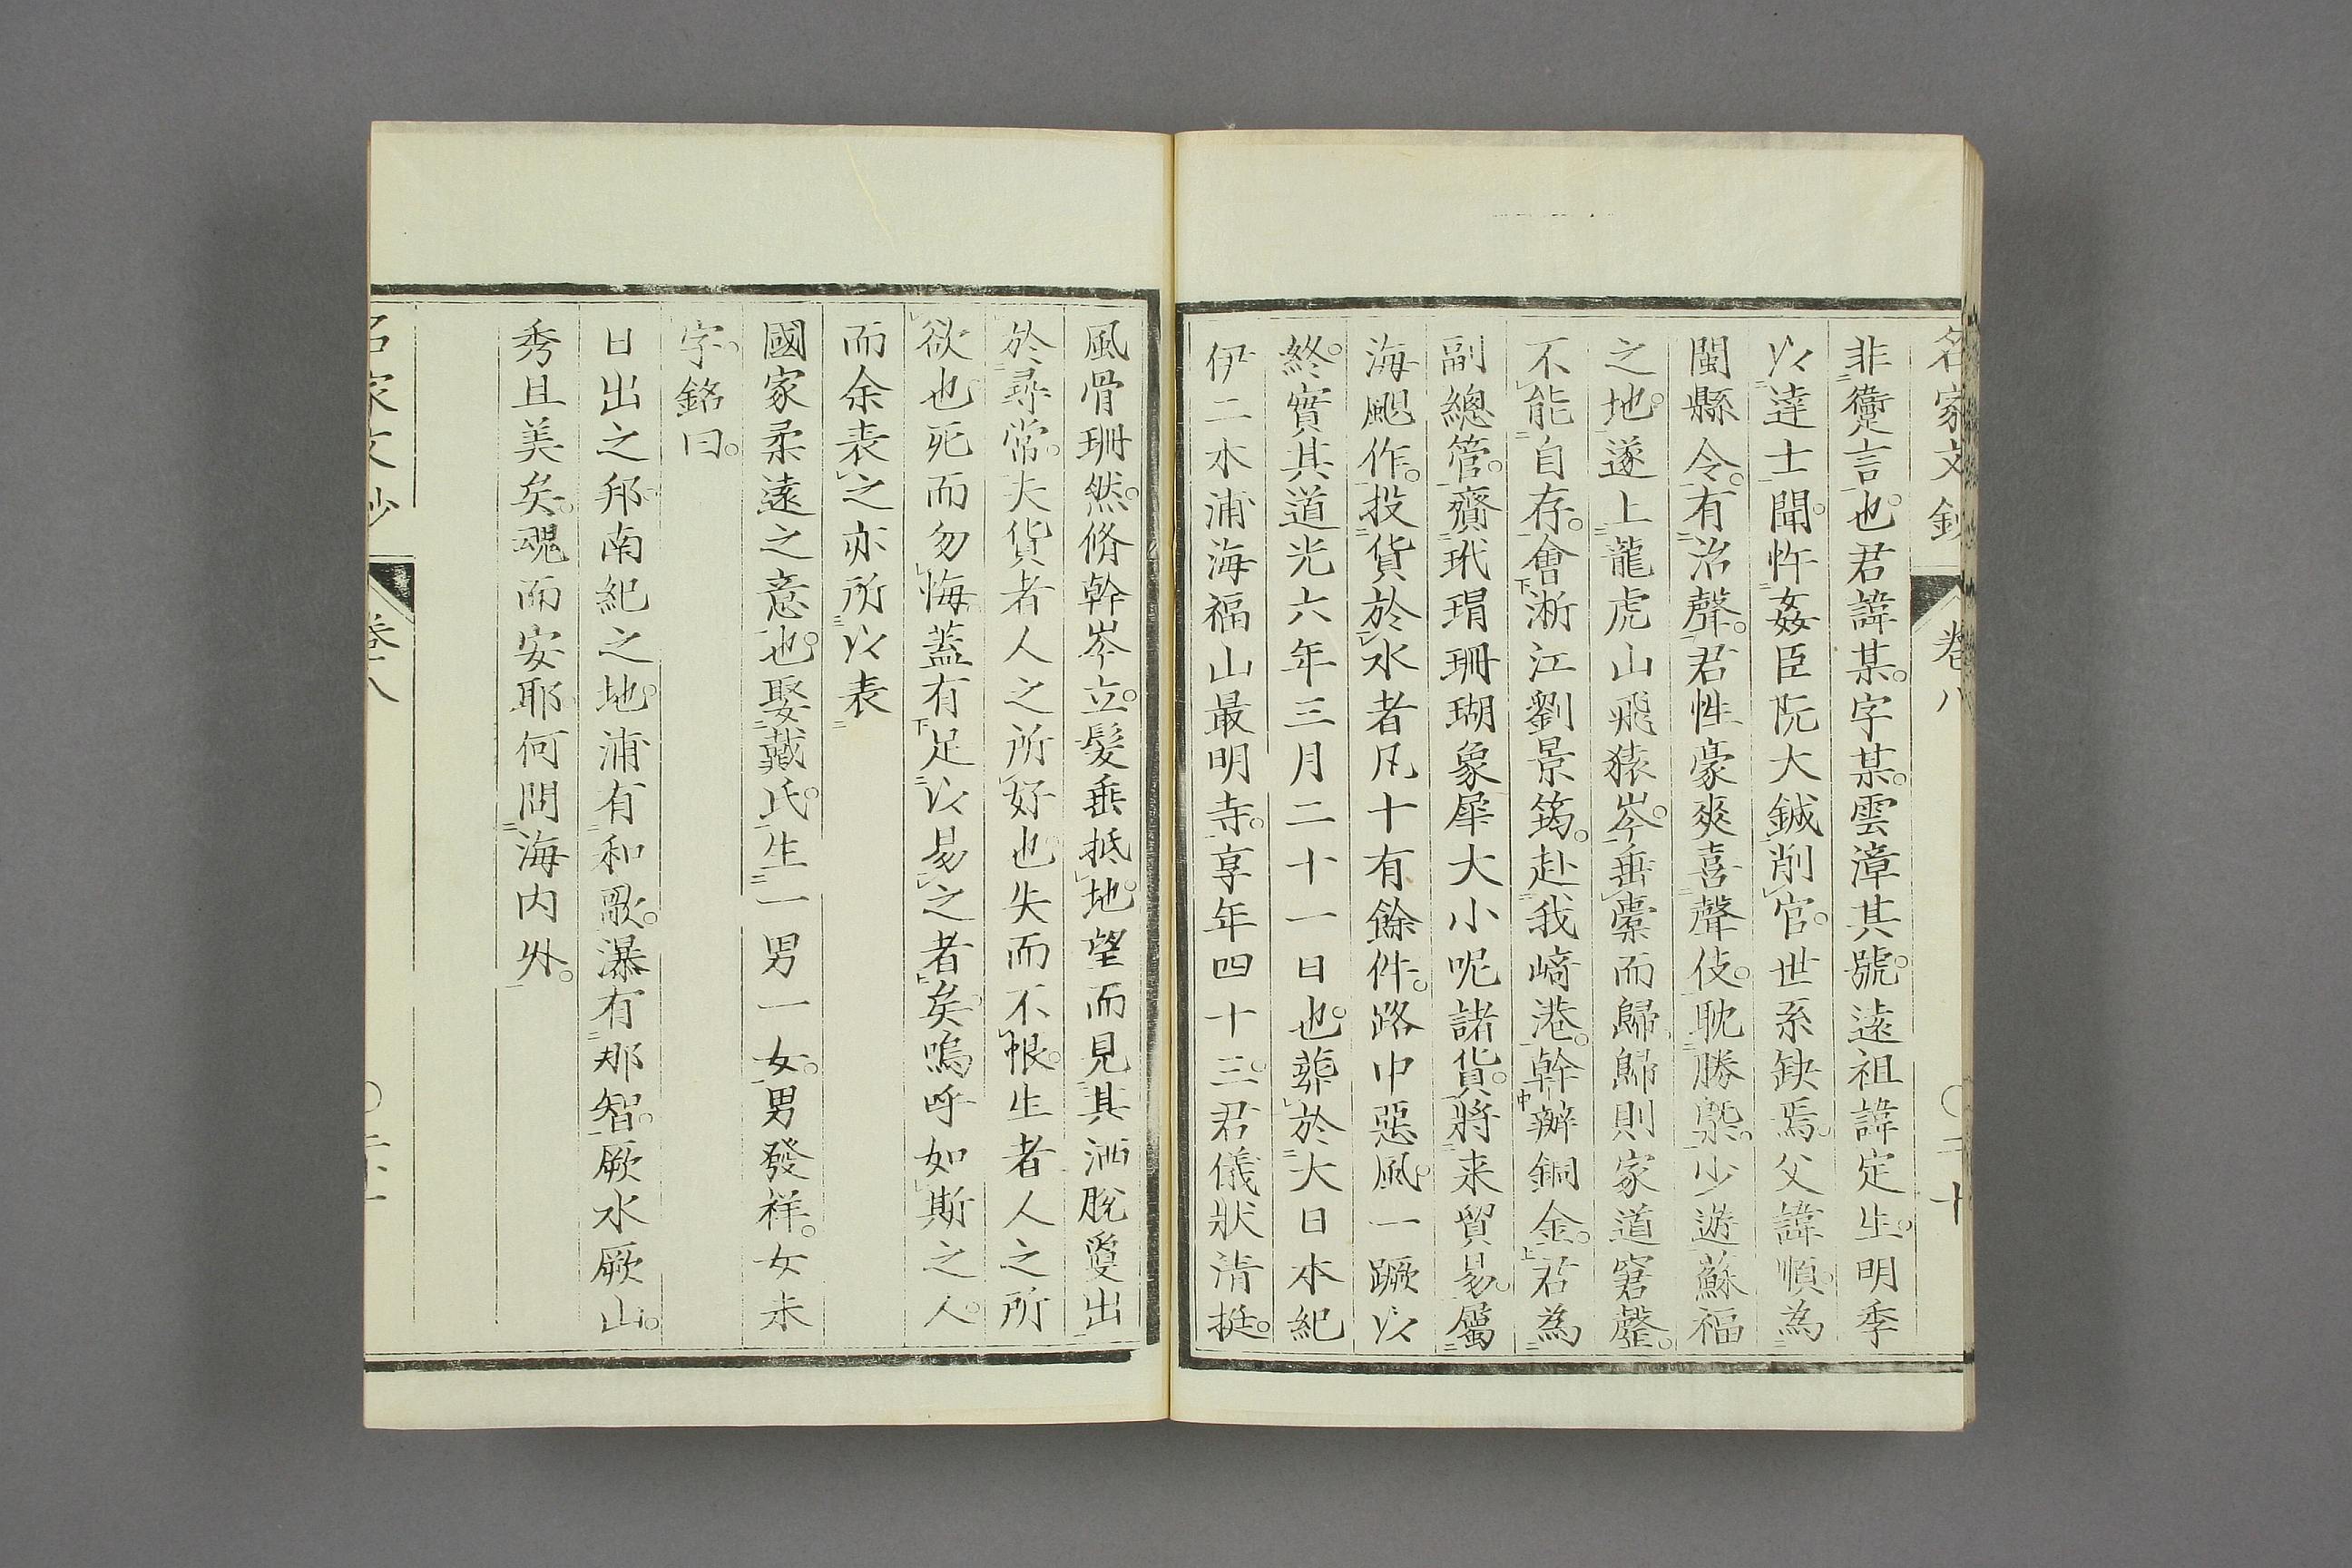 名家文鈔 卷八 〇二十
非躗言也。君諱某。字某。雲漳其號。遠祖諱定生。明季
以達士聞。忤姦臣阮大鋮削官。世系缺焉。父諱順。為
閩縣令。有治聲。君性豪爽喜聲伎。耽勝槩。少遊蘇福
之地。遂上龍虎山飛猿岑。垂橐而歸歸則家道窘罄。
不能自存。會淅江劉景筠。赴我﨑港。幹辦銅金。君為
副總管。齎玳瑁珊瑚象犀大小呢諸貨。將来貿易。屬
海颶作。投貨於水者凡十有餘件。路中惡風。一蹶以
終。實其道光六年三月二十一日也。葬於大日本紀
伊二木浦海福山最明寺。享年四十三。君儀狀清挺。
風骨珊然。脩幹岑立。髮垂抵地。望而見其洒脫夐出
於尋常。夫貨者人之所好也。失而不恨。生者人之所
欲也。死而勿悔。蓋有足以易之者矣。嗚呼如斯之人。
而余表之亦所以表
國家柔遠之意也。娶戴氏。生一男一女。男發祥。女未
字。銘曰。
日出之邦。南紀之地。浦有和歌。瀑有那智。厥水厥山。
秀且美矣。魂而安耶。何問海内外。
名家文鈔 卷八 〇二十一